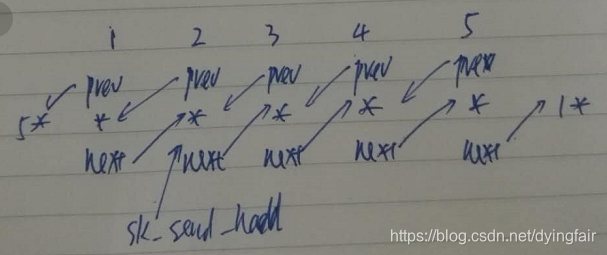 1 2 3 4 5
prev prev prev prev prev
5* * * * * * 1*
next next next next next
sk_send_head
https://blog.csdn.net/dyingfair